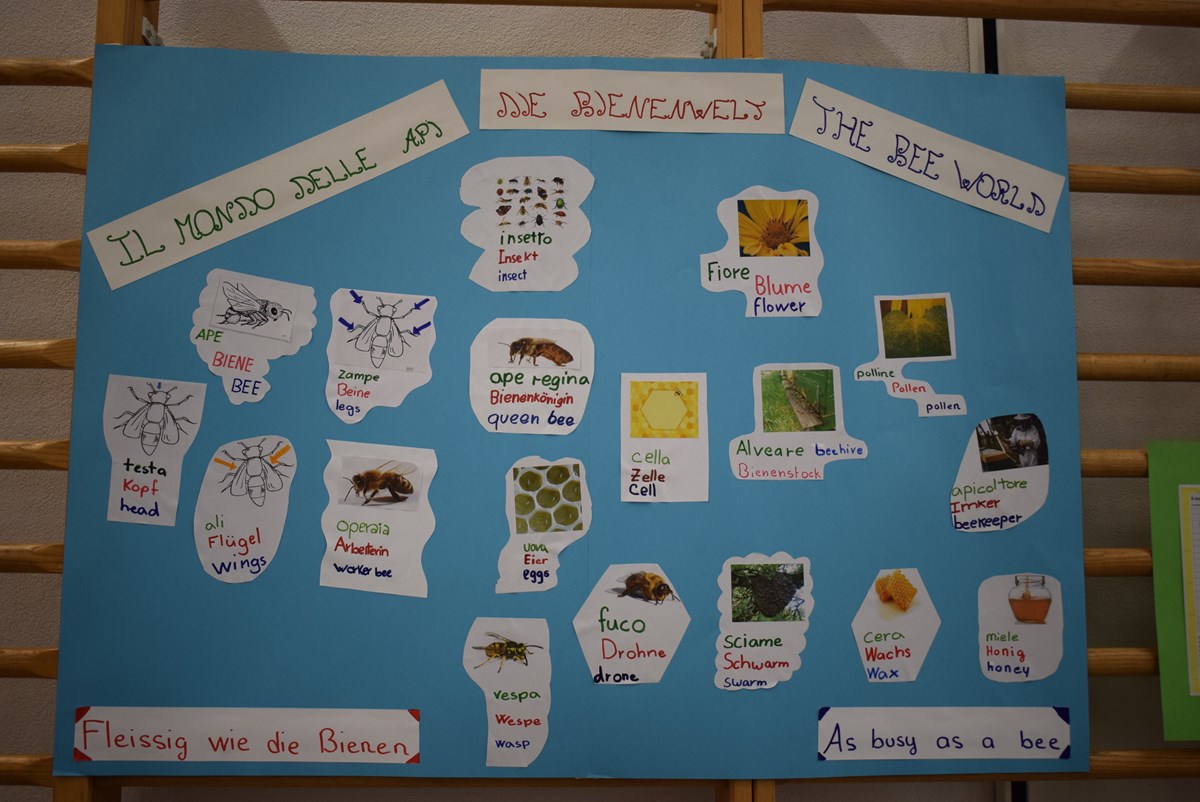 IL MONDO DELLE API
DIE BIENENWELT
THE BEE WORLD
insetto
Insekt
insect
Fiore
Blume
flower
APE
BIENE
BEE
zampe
Beine
legs
ape regina
Bienenkönigin
queen bee
polline
Pollen
pollen
testa
Kopf
head
ali
Flügel
wings
operaia
Arbeiterin
worker bee
uova
Eier
eggs
cella
Zelle
Cell
Alveare beehive
Bienenstock
apicoltore
Imker
beekeeper
vespa
Wespe
wasp
fuco
Drohne
drone
sciame
Schwarm
swarm
cera
Wachs
Wax
miele
Honig
honey
Fleissig wie die Bienen
As busy as a bee